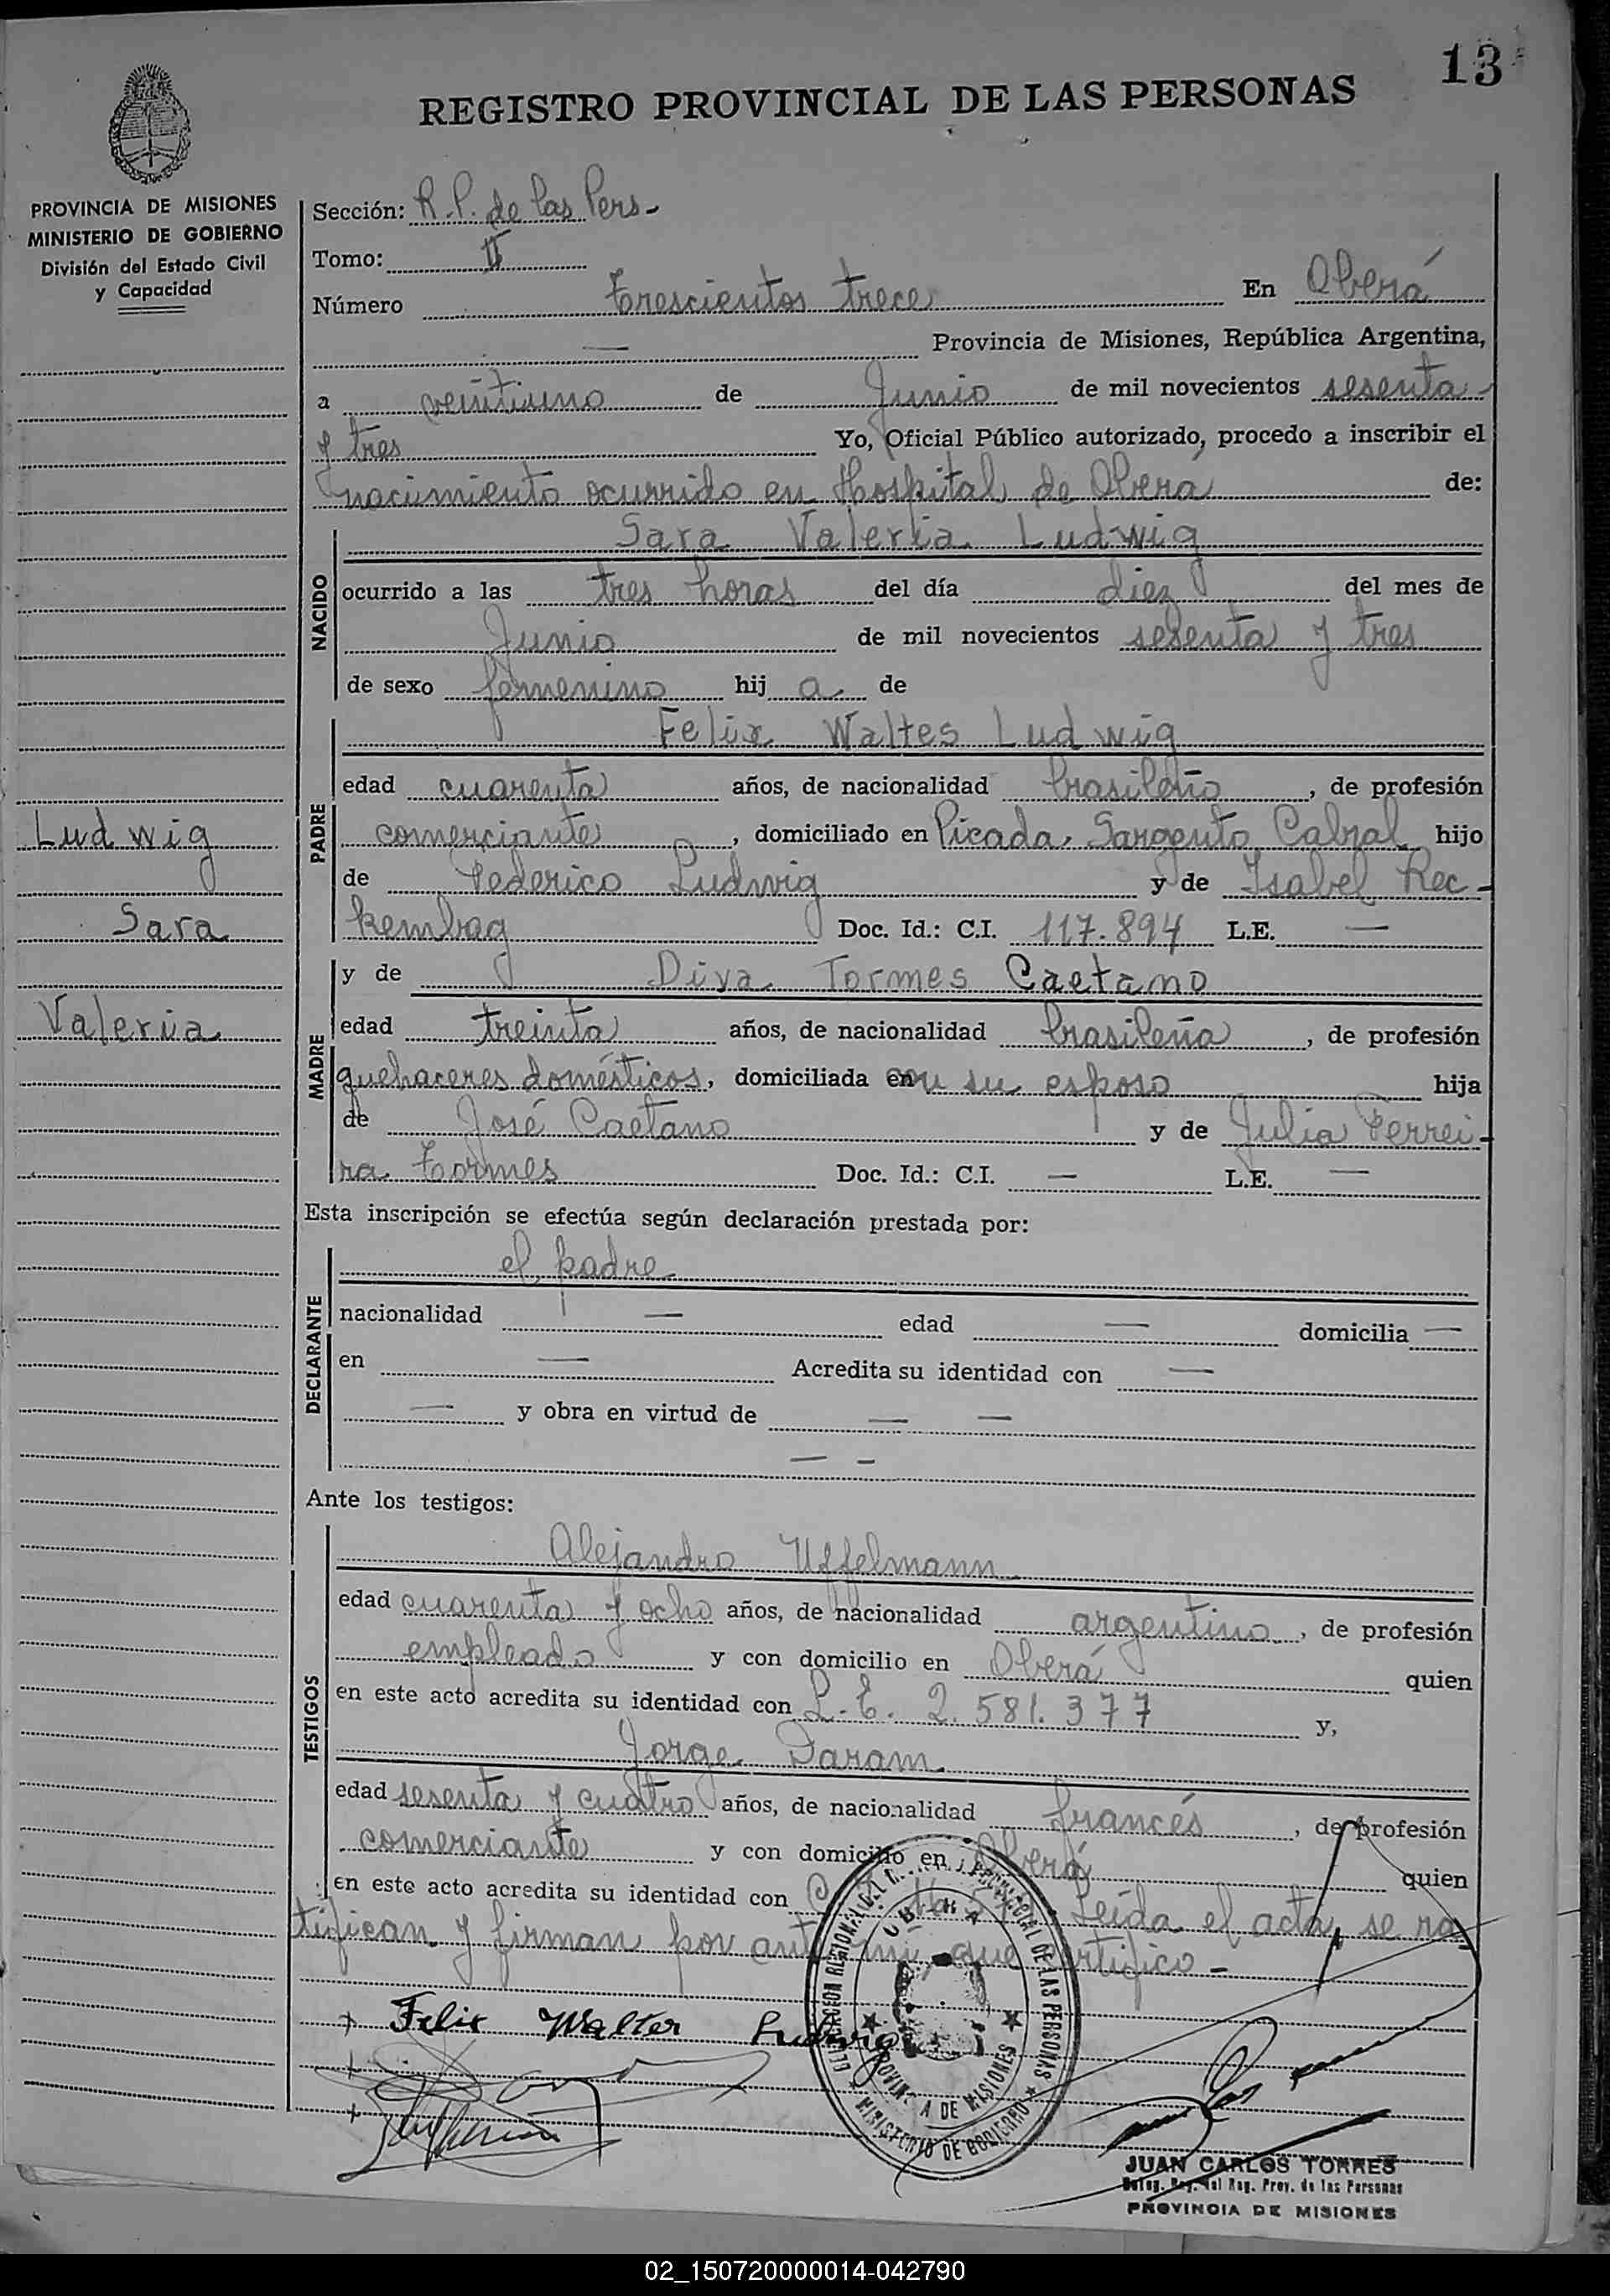 13
REGISTRO PROVINCIAL DE LAS PERSONAS
PROVINCIA DE MISIONES
MINISTERIO DE GOBIERNO
División del Estado Civil
y Capacidad
Ludwig
Sara
Valeria
Sección: R.P. de las Pers-
Tomo: II
Número trescientos trece En Oberá
— Provincia de Misiones, República Argentina,
a veintiuno de Junio de mil novecientos sesenta
y tres Yo, Oficial Público autorizado, procedo a inscribir el
nacimiento ocurrido en Hospital de Oberá de:
NACIDO
Sara Valeria Ludwig
ocurrido a las tres horas del día diez del mes de
Junio de mil novecientos sesenta y tres
de sexo femenino hij a de
PADRE
Felix Waltes Ludwig
edad cuarenta años, de nacionalidad brasileño, de profesión
comerciante, domiciliado en Picada Sargento Cabral hijo
de Federico Ludwig y de Isabel Rec-
kembag Doc. Id.: C.I. 117.894 L.E. —
MADRE
y de Diva Tormes Caetano
edad treinta años, de nacionalidad brasileña, de profesión
quehaceres domésticos, domiciliada en con su esposo hija
de José Caetano y de Julia Ferrei-
ra Tormes Doc. Id.: C.I. — L.E. —
Esta inscripción se efectúa según declaración prestada por:
DECLARANTE
el padre
nacionalidad — edad — domicilia —
en — Acredita su identidad con —
— y obra en virtud de — —
— –
Ante los testigos:
TESTIGOS
Alejandro Uffelmann
edad cuarenta y ocho años, de nacionalidad argentino, de profesión
empleado y con domicilio en Oberá quien
en este acto acredita su identidad con L.E. 2.581.377 y,
Jorge Daram
edad sesenta y cuatro años, de nacionalidad francés, de profesión
comerciante y con domicilio en Oberá quien
en este acto acredita su identidad con Leída el acta, se ra
tifican y firman por ante mi, que certifico-
Felix Walter Ludwig
PROVINCIAL DE LAS PERSONAS
OBERA
PROVINCIA DE MISIONES
MINISTERIO DE GOBIERNO
JUAN CARLOS TORRES
Deleg. Reg. del Reg. Prov. de las Personas
PROVINCIA DE MISIONES
02_150720000014-042790